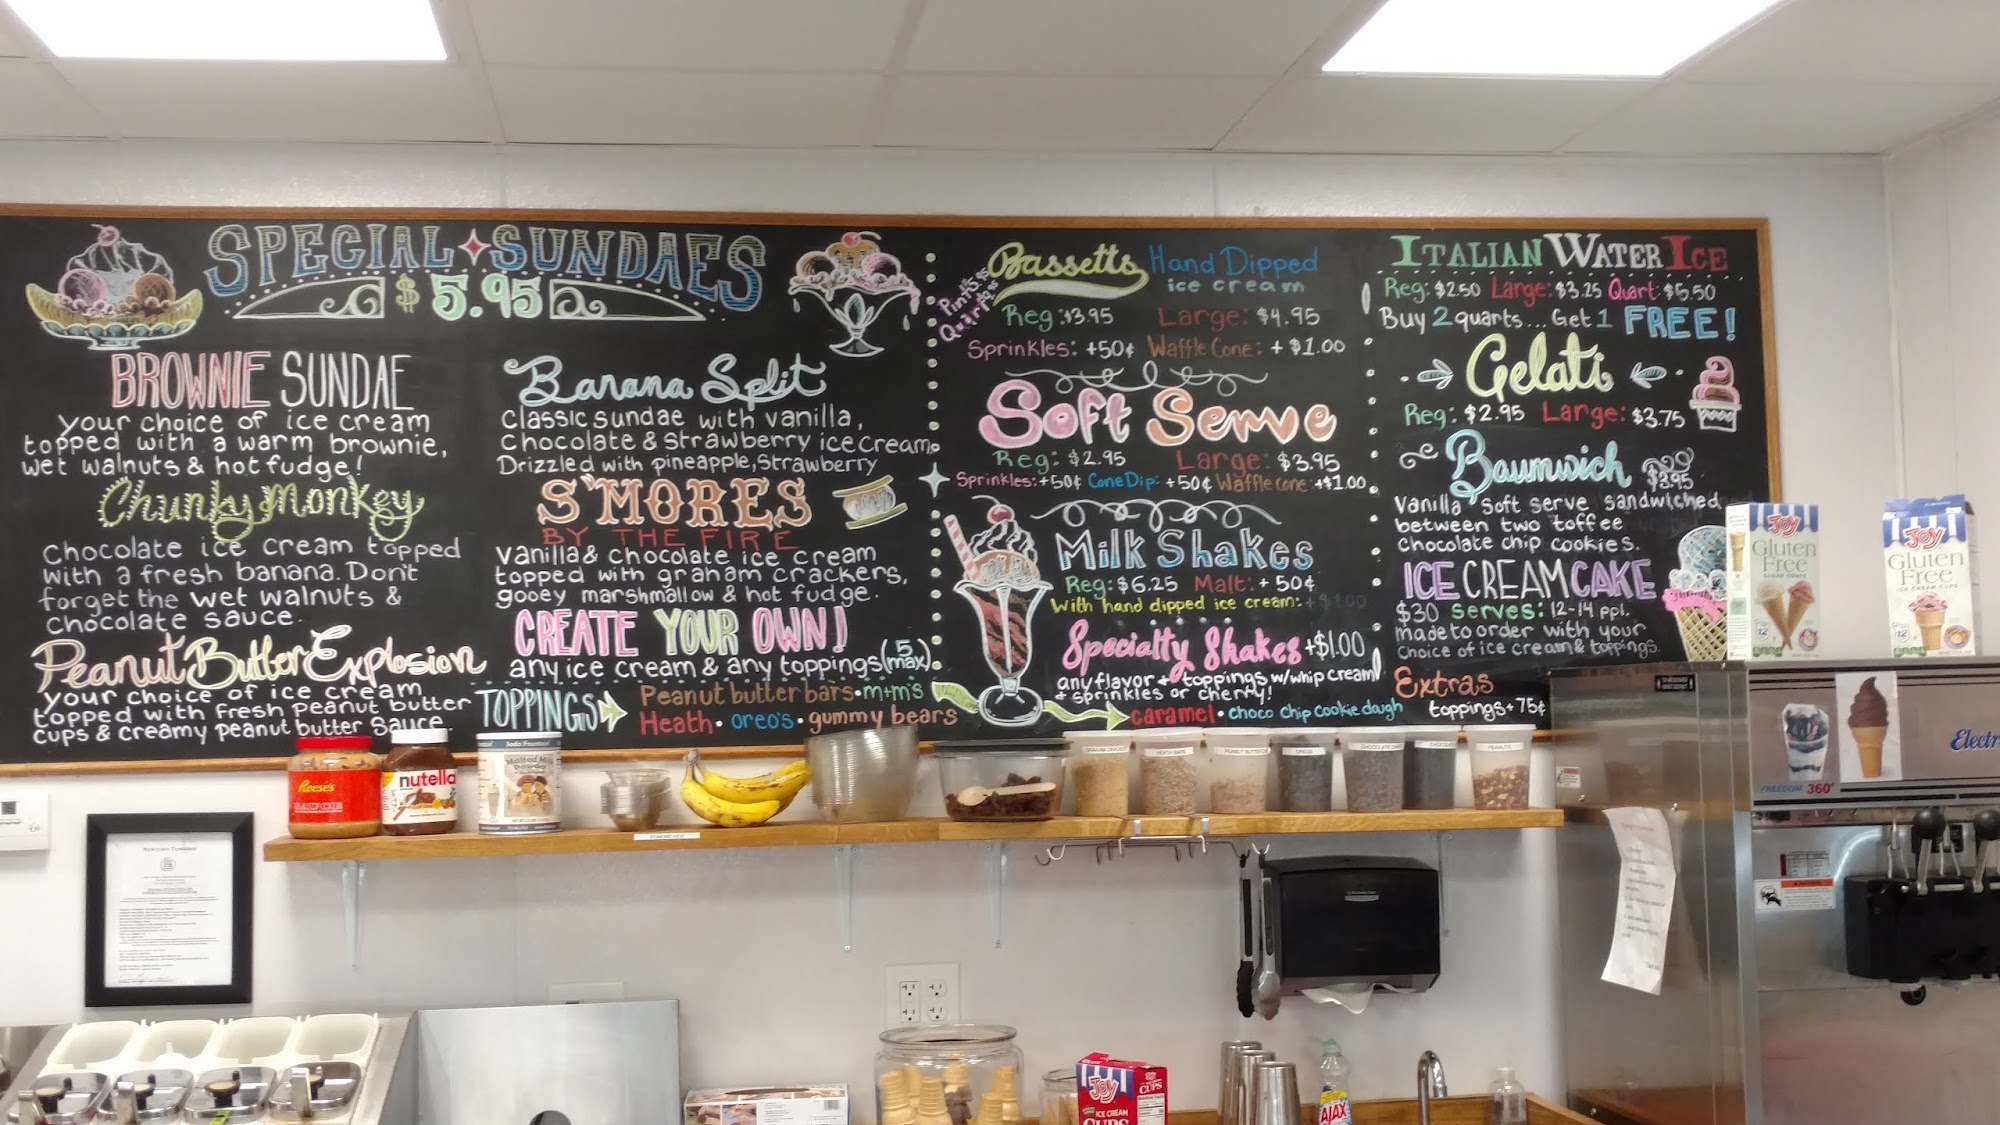 SPECIAL SUNDAES
$5.95
BROWNIE SUNDAE
your choice of ice cream
topped with a warm brownie,
wet walnuts & hot fudge!
Chunky Monkey
Chocolate ice cream topped
with a fresh banana. Don't
forget the wet walnuts &
chocolate sauce.
Peanut Butter Explosion
your choice of ice cream
topped with fresh peanut butter
cups & creamy peanut butter sauce
Banana Split
Classic sundae with vanilla,
chocolate & strawberry ice cream.
Drizzled with pineapple, strawberry
S'MORES
BY THE FIRE
Vanilla & chocolate ice cream
topped with graham crackers,
gooey marshmallow & hot fudge.
CREATE YOUR OWN!
any ice cream & any toppings (5 max)
TOPPINGS
Peanut butter bars • m+m's
Heath • oreo's • gummy bears
caramel • choco chip cookie dough
Bassetts Hand Dipped
ice cream
Reg: $3.95 Large: $4.95
Sprinkles: +50¢ Waffle Cone: +$1.00
Soft Serve
Reg: $2.95 Large: $3.95
Sprinkles: +50¢ Cone Dip: +50¢ Waffle cone: +$1.00
Milk Shakes
Reg: $6.25 Malt: +50¢
With hand dipped ice cream: +$1.00
Specialty Shakes +$1.00
any flavor + toppings w/whip cream
+ sprinkles or cherry!
ITALIAN WATER ICE
Reg: $2.50 Large: $3.25 Quart: $5.50
Buy 2 quarts... Get 1 FREE!
Gelati
Reg: $2.95 Large: $3.75
Baumwich $3.95
Vanilla soft serve sandwiched
between two toffee
chocolate chip cookies.
ICE CREAM CAKE
$30 serves: 12-14 ppl.
made to order with your
choice of ice cream & toppings.
Extras
toppings +75¢
Joy
Gluten
Free
SUGAR CONES
12
Joy
Gluten
Free
ICE CREAM CUPS
12
Reese's
nutella
Soda Fountain
Malted Milk
Powder
GRAHAM CRACKER
HEATH BARS
OREOS
PEANUTS
FREEDOM 360°
Electr
WARNING
NEWTOWN TOWNSHIP
JOY
ICE CREAM
CUPS
JOY
CUPS
AJAX